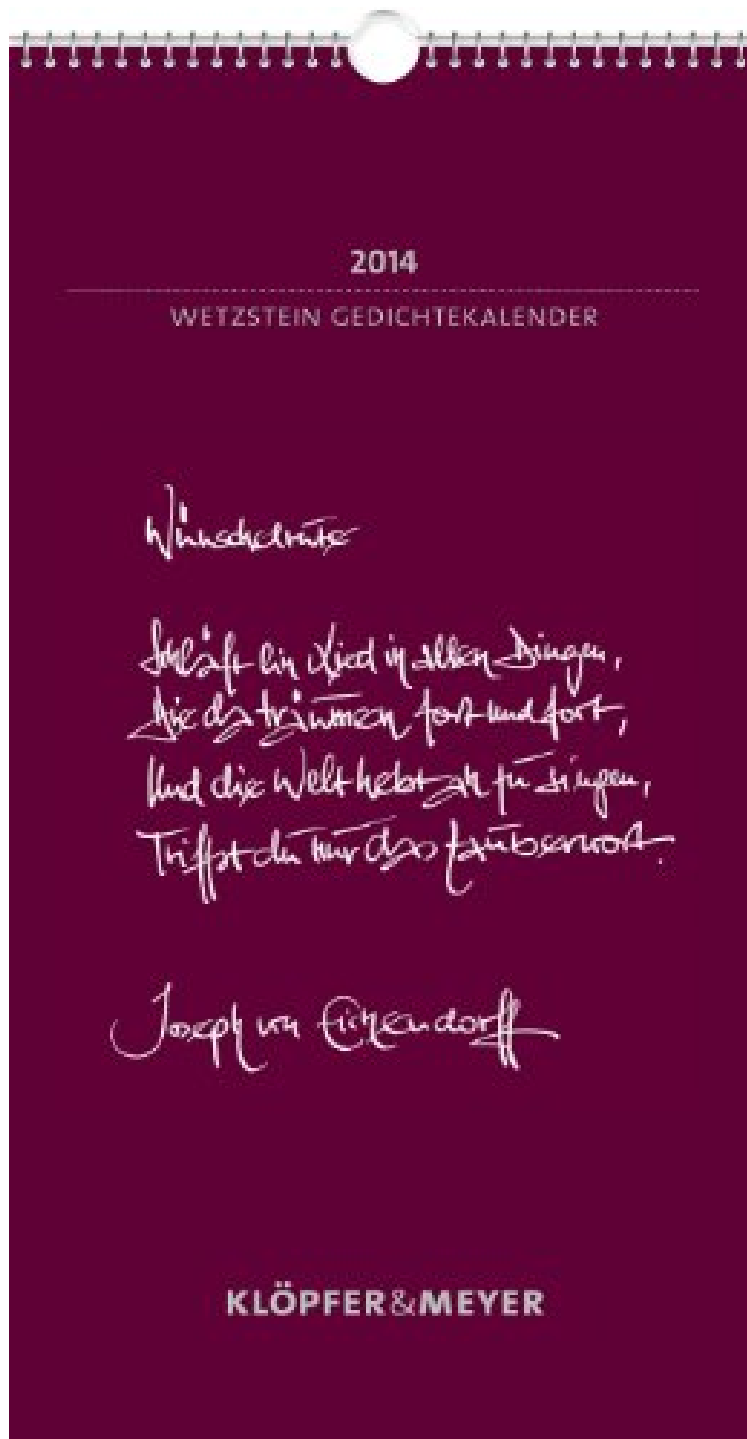 2014
WETZSTEIN GEDICHTEKALENDER
Wünschelrute
Schläft ein Lied in allen Dingen,
Die da träumen fort und fort,
Und die Welt hebt an zu singen,
Triffst du nur das Zauberwort.
Joseph von Eichendorff
KLÖPFER&MEYER